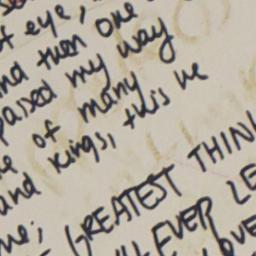 f eye,
and then one
paised my way
e of many
and kings, this he
me; GREATEST THIN
EVER LE
LOVE